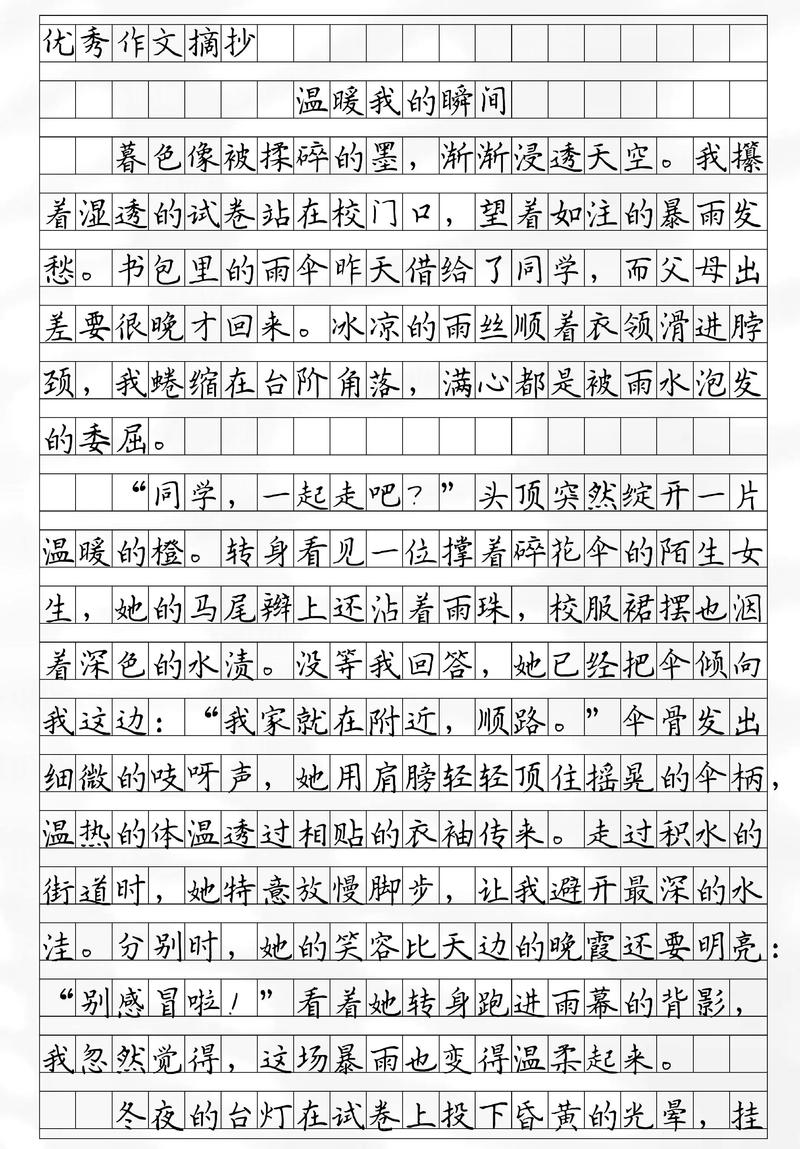 优秀作文摘抄
温暖我的瞬间
暮色像被揉碎的墨，渐渐浸透天空。我攥
着湿透的试卷站在校门口，望着如注的暴雨发
愁。书包里的雨伞昨天借给了同学，而父母出
差要很晚才回来。冰凉的雨丝顺着衣领滑进脖
颈，我蜷缩在台阶角落，满心都是被雨水泡发
的委屈。
“同学，一起走吧？”头顶突然绽开一片
温暖的橙。转身看见一位撑着碎花伞的陌生女
生，她的马尾辫上还沾着雨珠，校服裙摆也洇
着深色的水渍。没等我回答，她已经把伞倾向
我这边：“我家就在附近，顺路。”伞骨发出
细微的吱呀声，她用肩膀轻轻顶住摇晃的伞柄，
温热的体温透过相贴的衣袖传来。走过积水的
街道时，她特意放慢脚步，让我避开最深的水
洼。分别时，她的笑容比天边的晚霞还要明亮：
“别感冒啦！”看着她转身跑进雨幕的背影，
我忽然觉得，这场暴雨也变得温柔起来。
冬夜的台灯在试卷上投下昏黄的光晕，挂